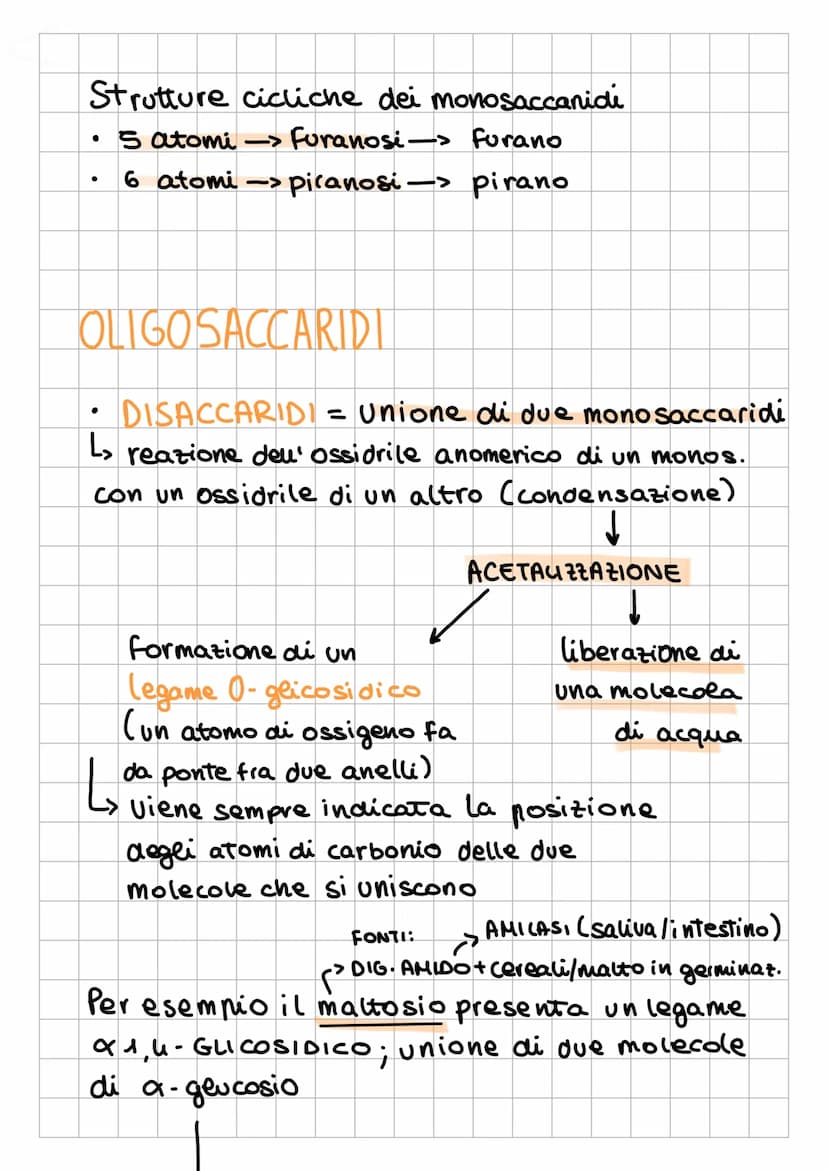 Strutture cicliche dei monosaccaridi
• 5 atomi —> furanosi —> furano
• 6 atomi —> piranosi —> pirano
OLIGOSACCARIDI
• DISACCARIDI = unione di due monosaccaridi
↳ reazione dell'ossidrile anomerico di un monos.
con un ossidrile di un altro (condensazione)
ACETALIZZAZIONE
formazione di un
legame O-glicosidico
(un atomo di ossigeno fa
da ponte fra due anelli)
liberazione di
una molecola
di acqua
↳ viene sempre indicata la posizione
degli atomi di carbonio delle due
molecole che si uniscono
FONTI: -> AMILASI (saliva/intestino)
-> DIG. AMIDO + cereali/malto in germinaz.
Per esempio il maltosio presenta un legame
α 1,4 - GLICOSIDICO; unione di due molecole
di α-glucosio